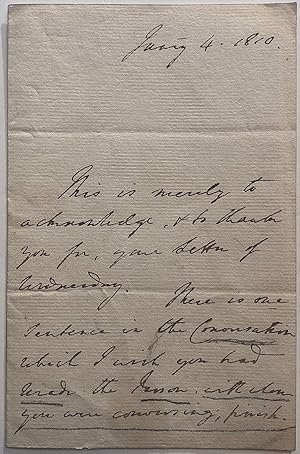 Jany 4. 1810.
This is merely to
acknowledge, & to thank
you for, your letter of
Wednesday. There is one
sentence in the Conversation
which I wish you had
made the Person, with whom
you were conversing, finish.